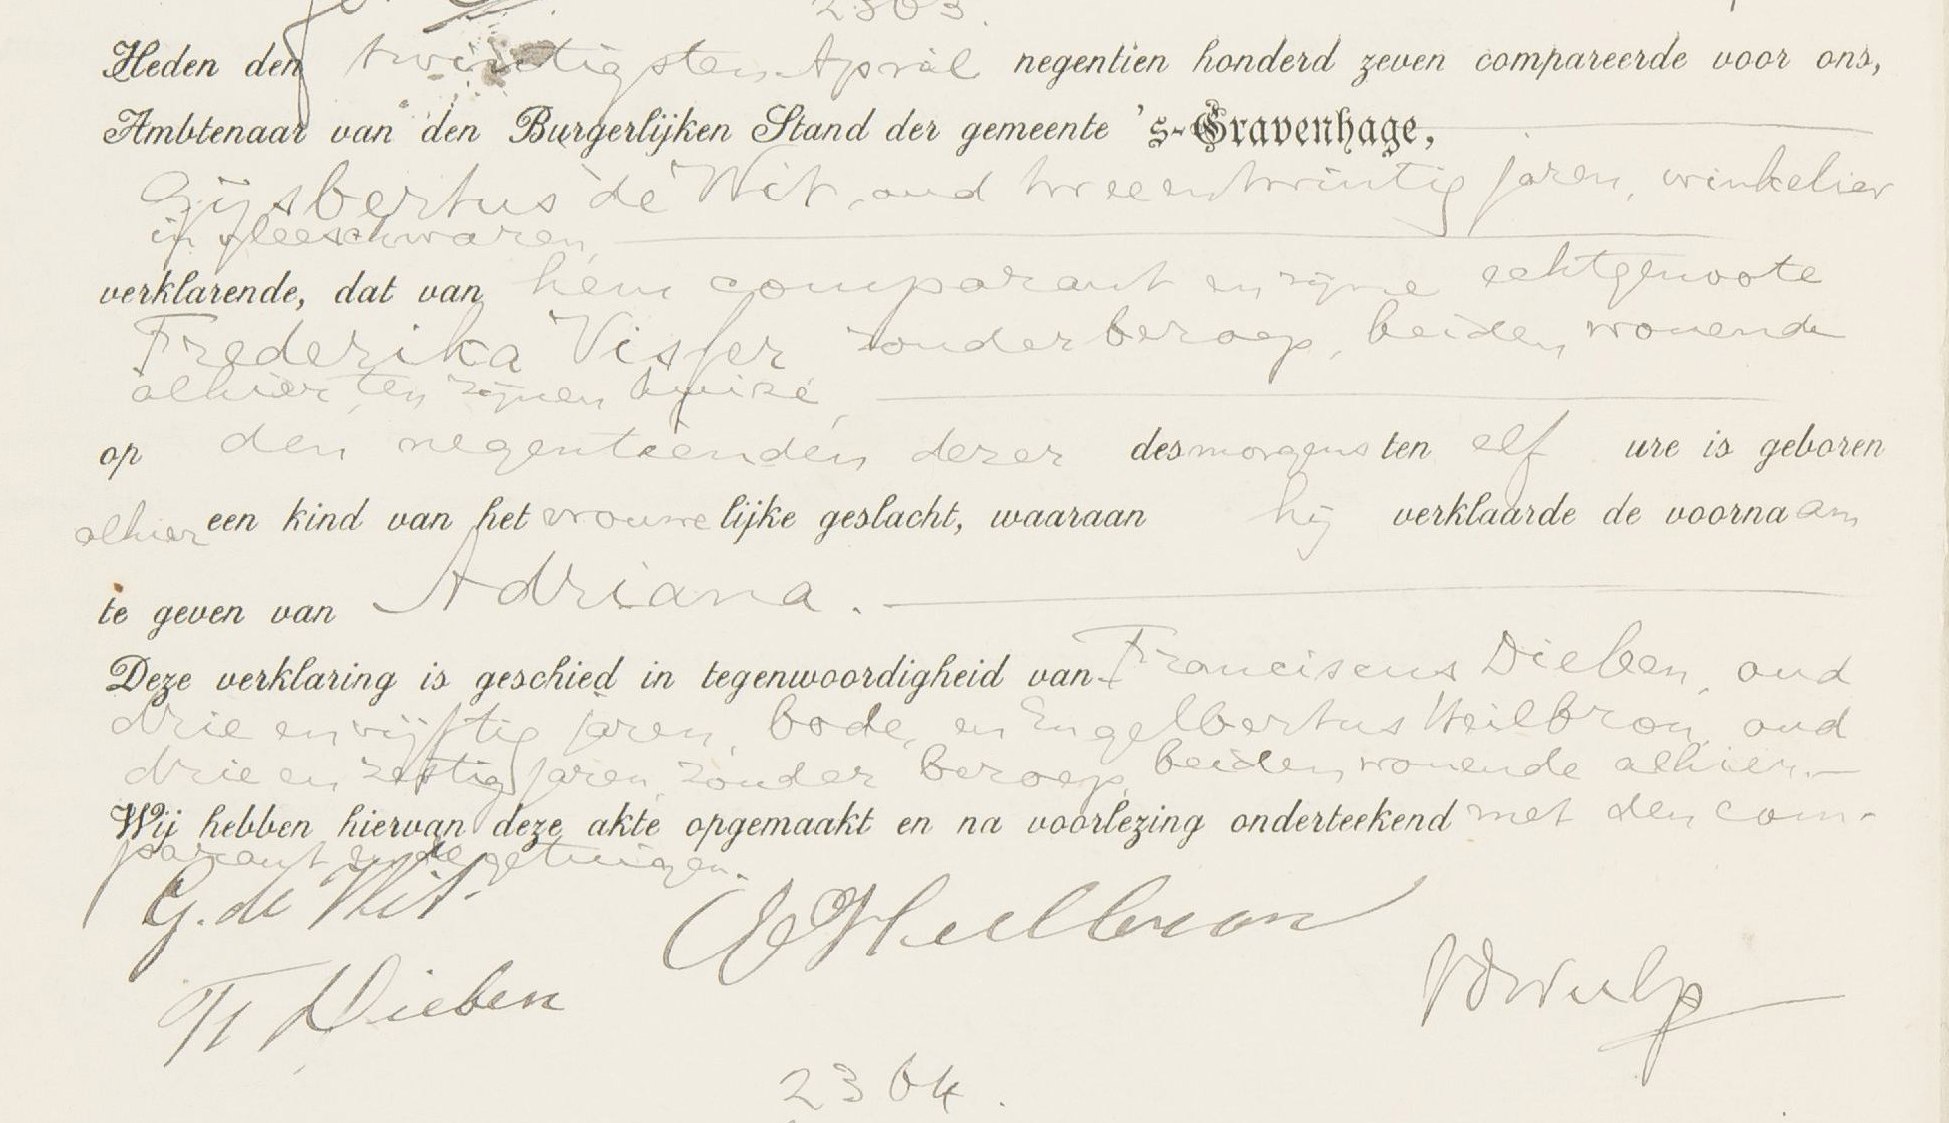 2303.
Heden den twintigsten April negentien honderd zeven compareerde voor ons,
Ambtenaar van den Burgerlijken Stand der gemeente 's-Gravenhage,
Gijsbertus de Wit, oud tweeentwintig jaren, winkelier
in vleeschwaren,
verklarende, dat van hem comparant en zijne echtgenoote
Frederika Visser zonder beroep, beiden wonende
alhier, ten zijnen huize,
op den negentienden dezer des morgens ten elf ure is geboren
alhier een kind van het vrouwelijke geslacht, waaraan hij verklaarde de voornaam
te geven van Adriana.
Deze verklaring is geschied in tegenwoordigheid van Franciscus Dieben, oud
drie en vijftig jaren, bode, en Engelbertus Heilbron, oud
drie en zestig jaren, zonder beroep, beiden wonende alhier.
Wij hebben hiervan deze akte opgemaakt en na voorlezing onderteekend met den com-
parant en de getuigen.
G. de Wit.
E Heilbron
Fr Dieben
vdWulp
2304.